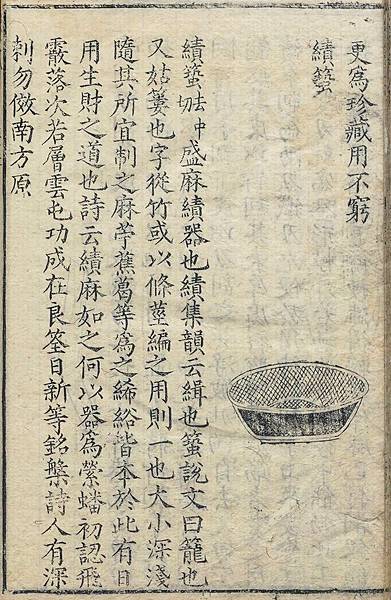 更為珍藏用不窮
績
績盛麻績器也績集韻云緝也說文曰籠也
又姑簍也字從竹或以條莖編之用則一也大小深淺
隨其所宜制之麻苧蕉葛等為之絺綌皆本於此有日
用生財之道也詩云績麻如之何以器為縈蟠初認飛
霰落次若層雲屯功成在良筌日新等銘槃詩人有深
刺勿傚南方原